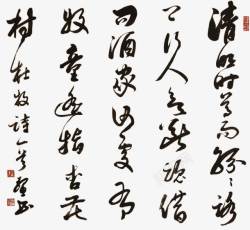 清明时节雨纷纷路
上行人欲断魂借
问酒家何处有
牧童遥指杏花
村 杜牧诗一首